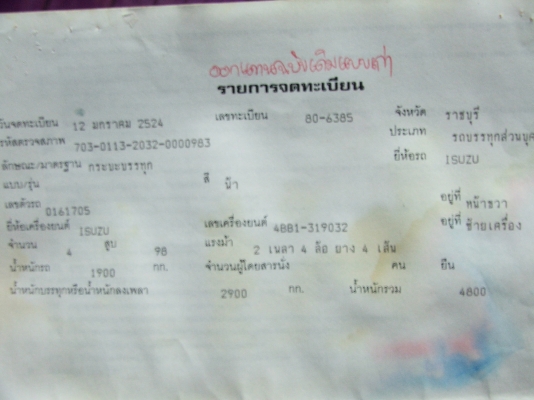 ออกแทนฉบับเดิมแบบเก่า
รายการจดทะเบียน
วันจดทะเบียน 12 มกราคม 2524 เลขทะเบียน 80-6385 จังหวัด ราชบุรี
รหัสตรวจสภาพ 703-0113-2032-0000983 ประเภท รถบรรทุกส่วนบุค
ลักษณะ/มาตรฐาน กระบะบรรทุก ยี่ห้อรถ ISUZU
แบบ/รุ่น สี น้ำ
เลขตัวรถ 0161705 อยู่ที่ หน้าขวา
ยี่ห้อเครื่องยนต์ ISUZU เลขเครื่องยนต์ 4881-319032 อยู่ที่ ซ้ายเครื่อง
จำนวน 4 สูบ 98 แรงม้า 2 เพลา 4 ล้อ ยาง 4 เส้น
น้ำหนักรถ 1900 กก. จำนวนผู้โดยสารนั่ง คน ยืน
น้ำหนักบรรทุกหรือน้ำหนักลงเพลา 2900 กก. น้ำหนักรวม 4800